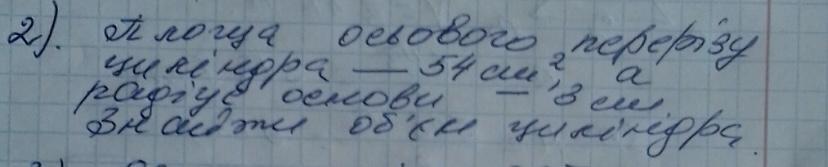 2). Площа осьового перерізу
циліндра — 54 см², а
радіус основи — 3 см
Знайти об'єм циліндра.